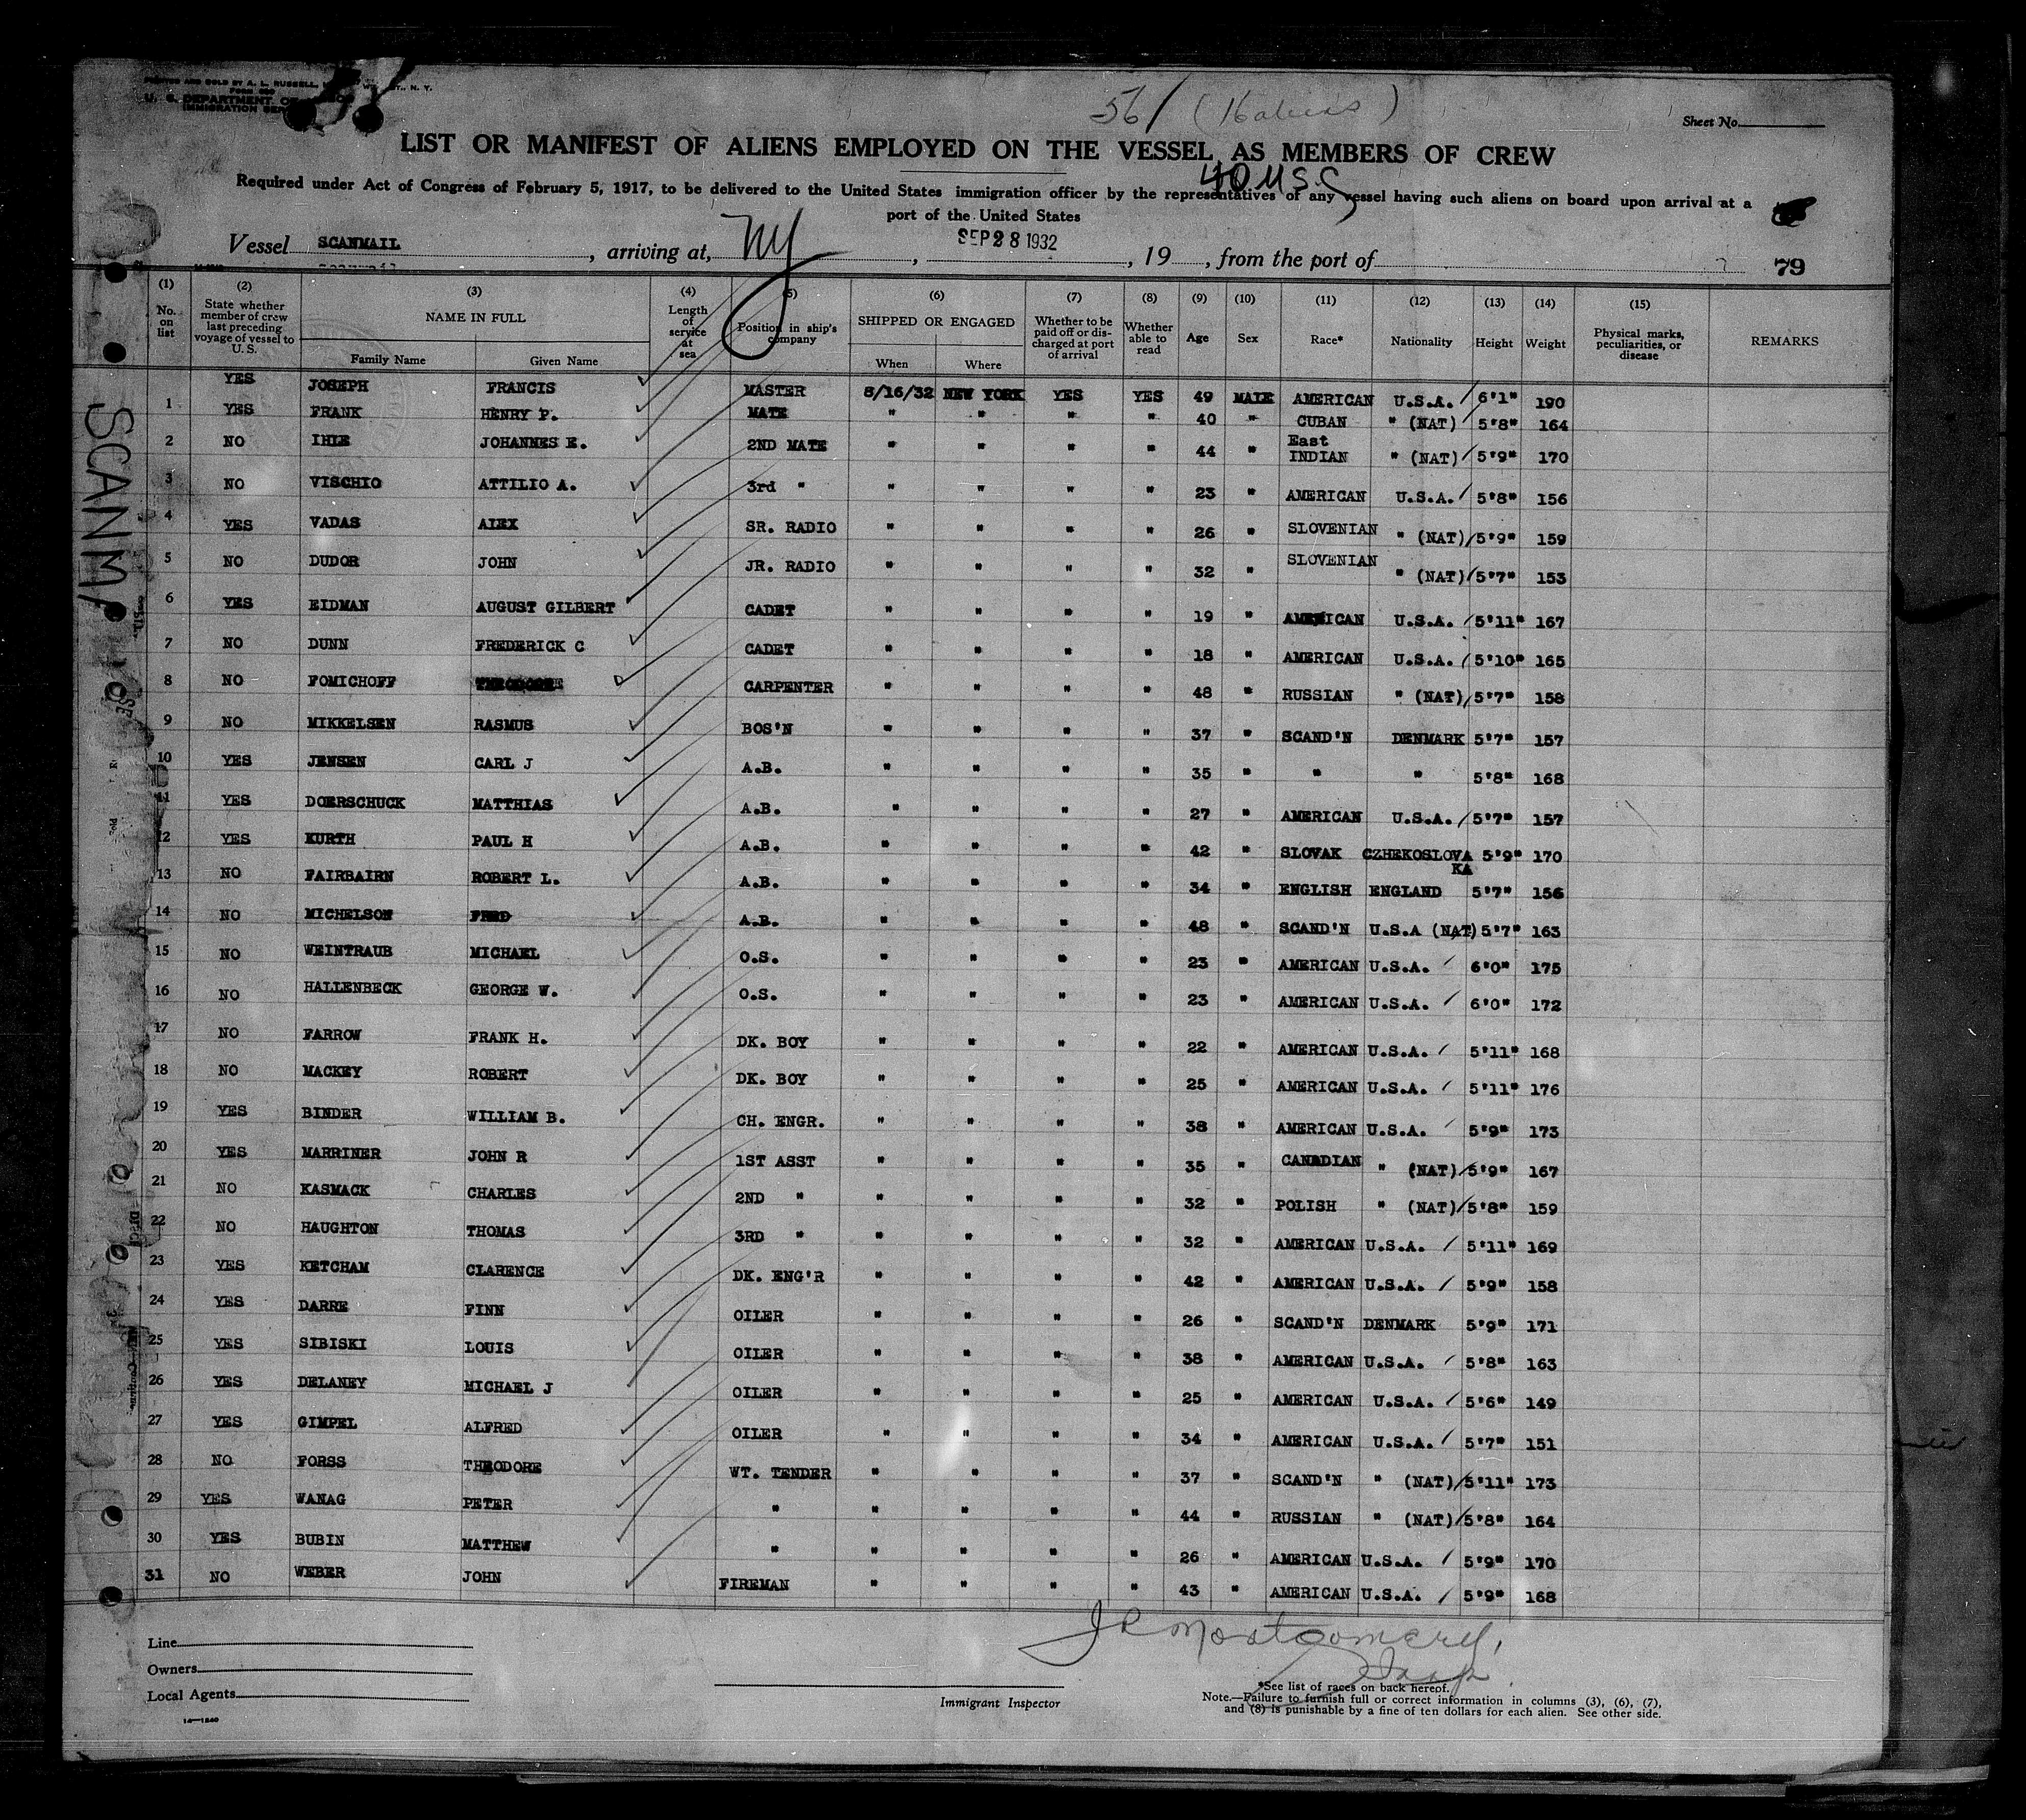 PRINTED AND SOLD BY A. L. RUSSELL, N. Y.
U. S. DEPARTMENT OF
IMMIGRATION SER
56 /
Sheet No.
LIST OR MANIFEST OF ALIENS EMPLOYED ON THE VESSEL AS MEMBERS OF CREW
40 U S C
Required under Act of Congress of February 5, 1917, to be delivered to the United States immigration officer by the representatives of any vessel having such aliens on board upon arrival at a
port of the United States
Vessel SCANMAIL, arriving at, NY, SEP 28 1932, 19, from the port of 79
SCANM
(1) (2) (3) (4) (5) (6) (7) (8) (9) (10) (11) (12) (13) (14) (15)
No. on list State whether member of crew last preceding voyage of vessel to U. S. NAME IN FULL Family Name Given Name Length of service at sea Position in ship's company SHIPPED OR ENGAGED When Where Whether to be paid off or discharged at port of arrival Whether able to read Age Sex Race* Nationality Height Weight Physical marks, peculiarities, or disease REMARKS
YES JOSEPH FRANCIS MASTER 8/16/32 NEW YORK YES YES 49 MALE AMERICAN U.S.A. 6'1" 190
1 YES FRANK HENRY P. MATE " " " " 40 " CUBAN " (NAT) 5'8" 164
2 NO IHLE JOHANNES E. 2ND MATE " " " " 44 " East INDIAN " (NAT) 5'9" 170
3 NO VISCHIO ATTILIO A. 3rd " " " " " 23 " AMERICAN U.S.A. 5'8" 156
4 YES VADAS ALEX SR. RADIO " " " " 26 " SLOVENIAN " (NAT) 5'9" 159
5 NO DUDOR JOHN JR. RADIO " " " " 32 " SLOVENIAN " (NAT) 5'7" 153
6 YES EIDMAN AUGUST GILBERT CADET " " " " 19 " AMERICAN U.S.A. 5'11" 167
7 NO DUNN FREDERICK C CADET " " " " 18 " AMERICAN U.S.A. 5'10" 165
8 NO FOMICHOFF THEODORE CARPENTER " " " " 48 " RUSSIAN " (NAT) 5'7" 158
9 NO MIKKELSEN RASMUS BOS'N " " " " 37 " SCAND'N DENMARK 5'7" 157
10 YES JENSEN CARL J A.B. " " " " 35 " " " 5'8" 168
11 YES DOERSCHUCK MATTHIAS A.B. " " " " 27 " AMERICAN U.S.A. 5'7" 157
12 YES KURTH PAUL H A.B. " " " " 42 " SLOVAK CZHEKOSLOVAKA 5'9" 170
13 NO FAIRBAIRN ROBERT L. A.B. " " " " 34 " ENGLISH ENGLAND 5'7" 156
14 NO MICHELSON FRED A.B. " " " " 48 " SCAND'N U.S.A (NAT) 5'7" 163
15 NO WEINTRAUB MICHAEL O.S. " " " " 23 " AMERICAN U.S.A. 6'0" 175
16 NO HALLENBECK GEORGE W. O.S. " " " " 23 " AMERICAN U.S.A. 6'0" 172
17 NO FARROW FRANK H. DK. BOY " " " " 22 " AMERICAN U.S.A. 5'11" 168
18 NO MACKEY ROBERT DK. BOY " " " " 25 " AMERICAN U.S.A. 5'11" 176
19 YES BINDER WILLIAM B. CH. ENGR. " " " " 38 " AMERICAN U.S.A. 5'9" 173
20 YES MARRINER JOHN R 1ST ASST " " " " 35 " CANADIAN " (NAT) 5'9" 167
21 NO KASMACK CHARLES 2ND " " " " " 32 " POLISH " (NAT) 5'8" 159
22 NO HAUGHTON THOMAS 3RD " " " " " 32 " AMERICAN U.S.A. 5'11" 169
23 YES KETCHAM CLARENCE DK. ENG'R " " " " 42 " AMERICAN U.S.A. 5'9" 158
24 YES DARRE FINN OILER " " " " 26 " SCAND'N DENMARK 5'9" 171
25 YES SIBISKI LOUIS OILER " " " " 38 " AMERICAN U.S.A. 5'8" 163
26 YES DELANEY MICHAEL J OILER " " " " 25 " AMERICAN U.S.A. 5'6" 149
27 YES GIMPEL ALFRED OILER " " " " 34 " AMERICAN U.S.A. 5'7" 151
28 NO FORSS THEODORE WT. TENDER " " " " 37 " SCAND'N " (NAT) 5'11" 173
29 YES WANAG PETER " " " " " 44 " RUSSIAN " (NAT) 5'8" 164
30 YES BUBIN MATTHEW " " " " " 26 " AMERICAN U.S.A. 5'9" 170
31 NO WEBER JOHN FIREMAN " " " " 43 " AMERICAN U.S.A. 5'9" 168
J R Montgomery,
Insp.
Line
Owners
Local Agents
14—1240
Immigrant Inspector
*See list of races on back hereof.
Note.—Failure to furnish full or correct information in columns (3), (6), (7),
and (8) is punishable by a fine of ten dollars for each alien. See other side.